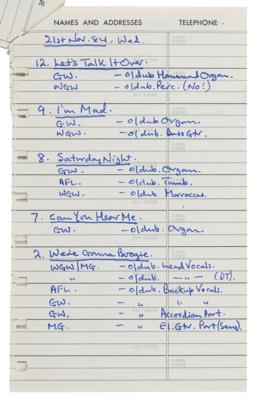 NAMES AND ADDRESSES TELEPHONE
21st Nov. 84. Wed.
12. Let's Talk It Over.
GW. — o/dub Hammond Organ.
WGW — o/dub. Perc. (No!)
9. I'm Mad.
GW. — o/dub Organ.
WGW. — o/dub. Bass Gtr.
8. Saturday Night.
GW. — o/dub. Organ.
AFL. — o/dub. Tamb.
WGW. — o/dub. Marraccas.
7. Can You Hear Me.
GW. — o/dub. Organ.
2. We're Gonna Boogie.
WGW/MG. — o/dub. Lead Vocals.
" — o/dub. — " — (DT).
AFL. — o/dub. Backup Vocals.
GW. — " " "
GW. — " Accordian Part.
MG. — " El. Gtr. Part (Same).